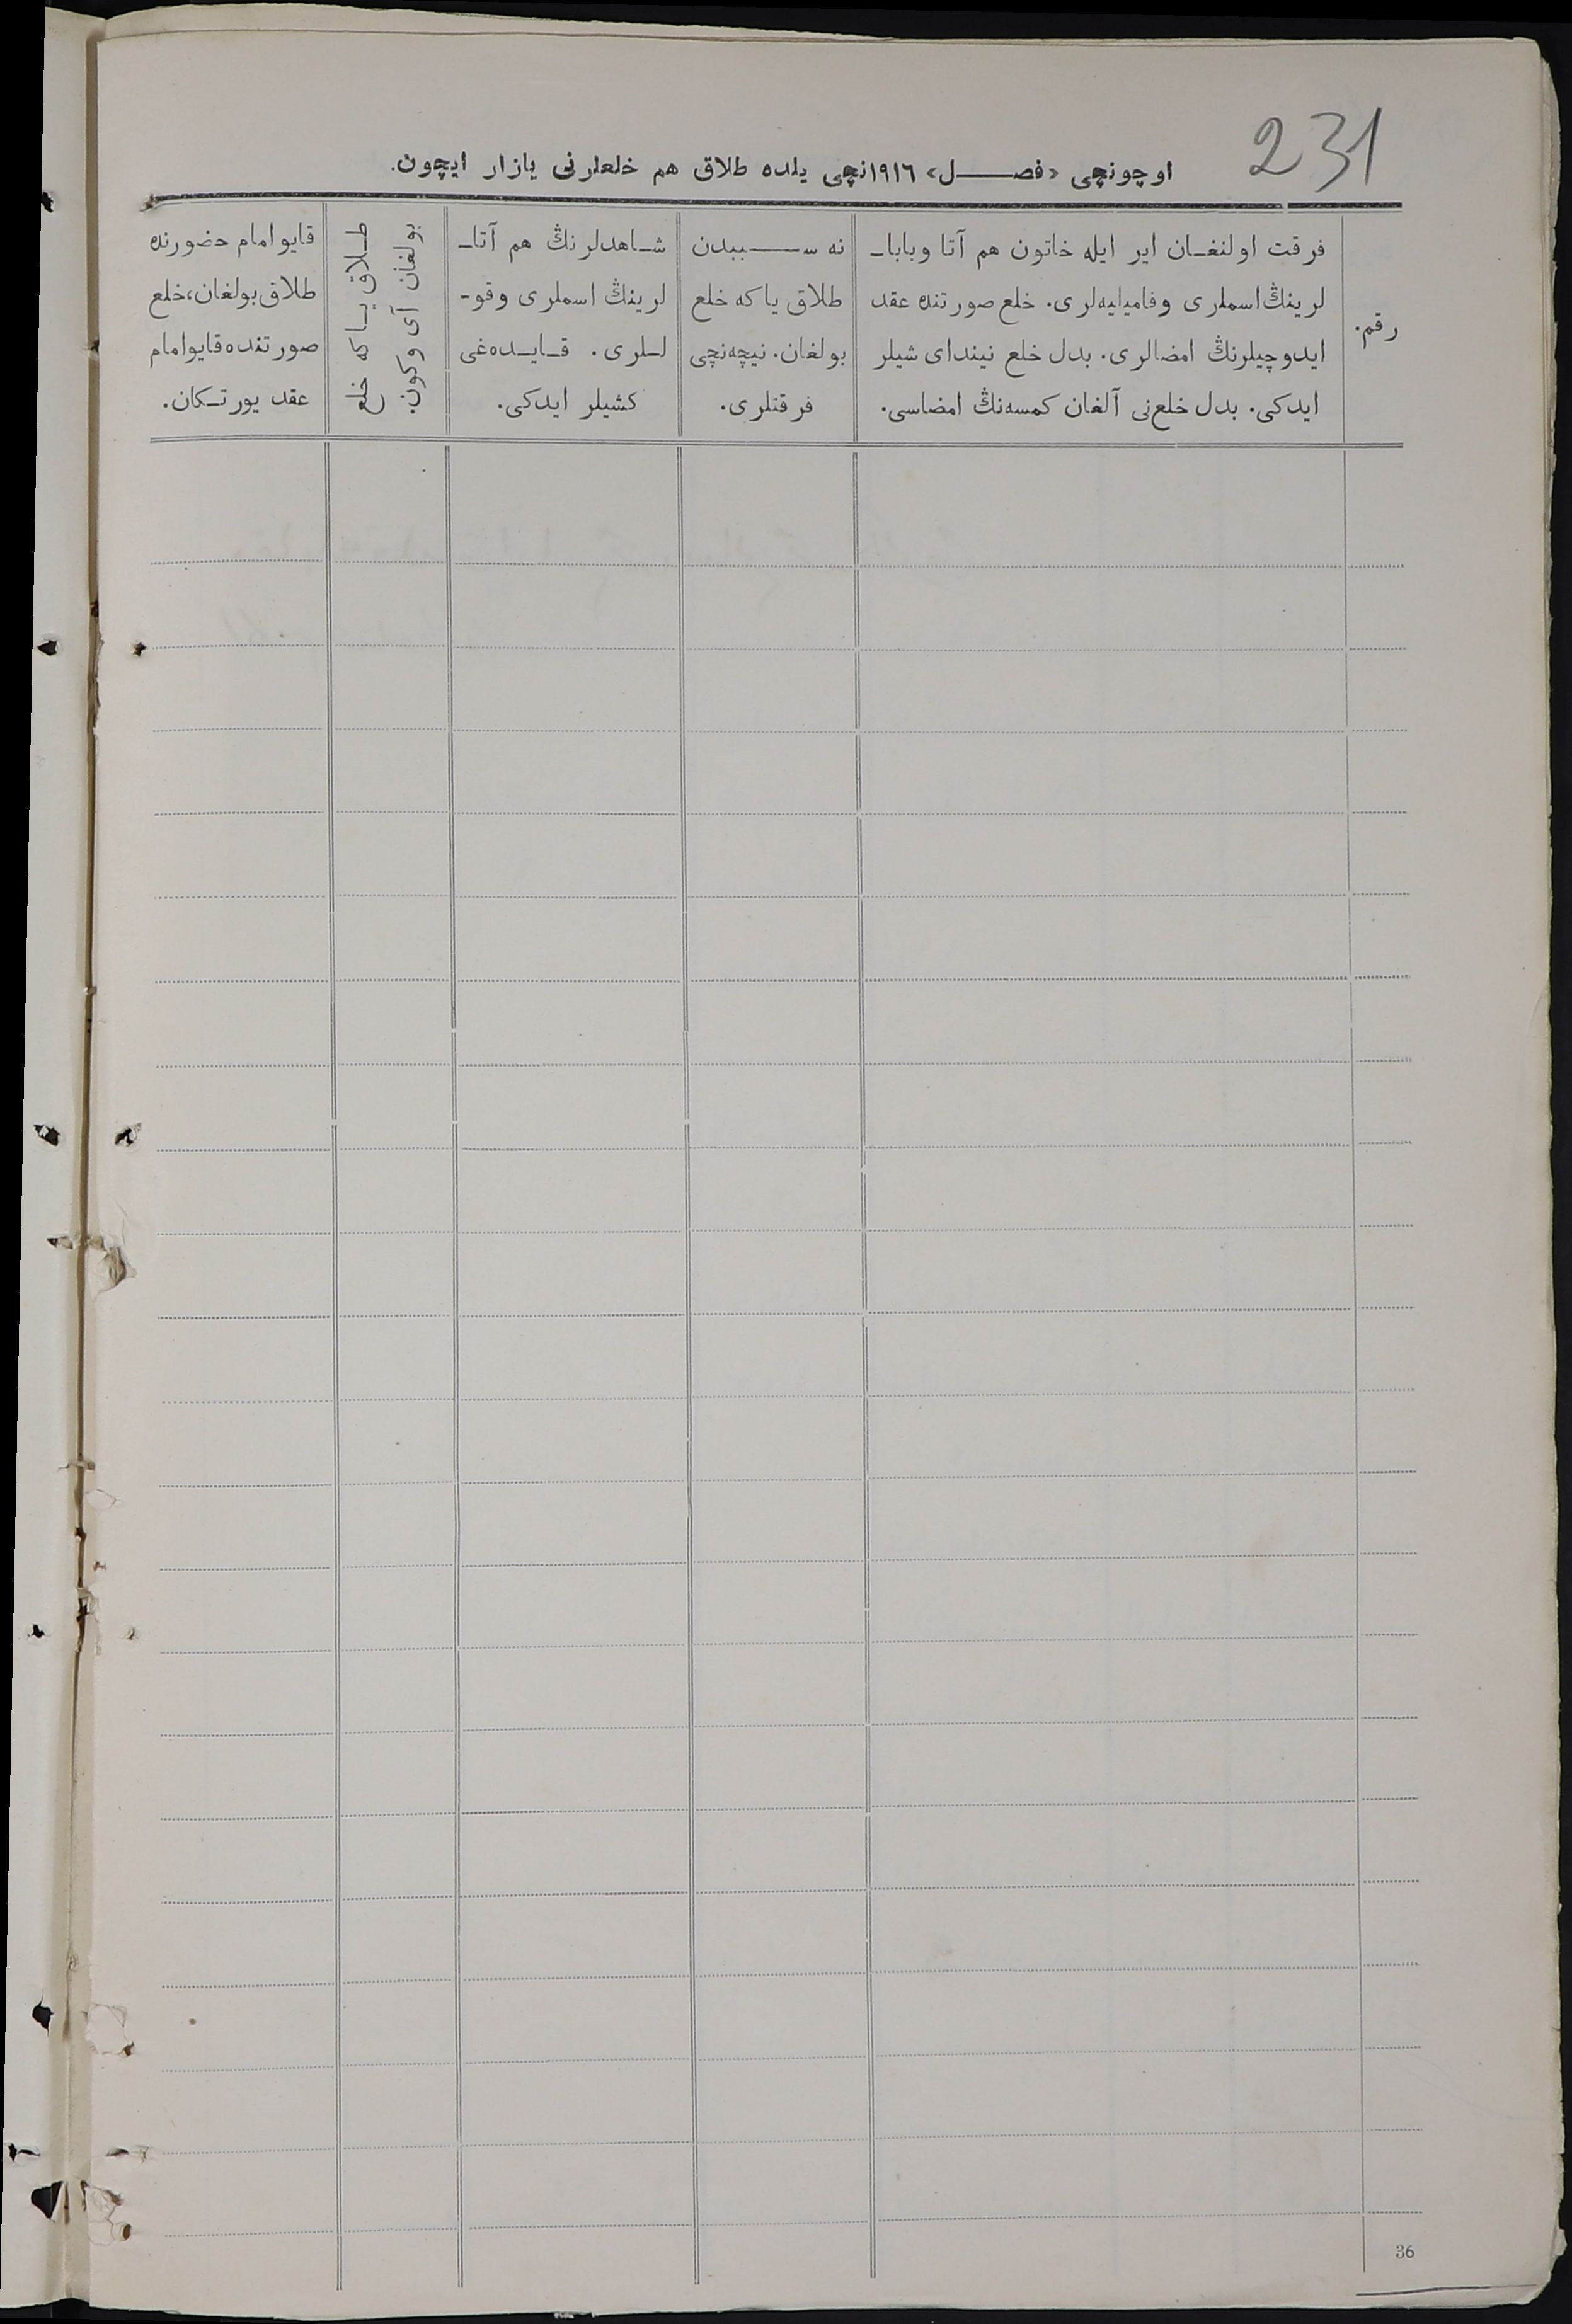 231
اوچونچی «فصـــل» ١٩١٦نچی یلده طلاق هم خلعلرنی یازار ایچون.
رقم.
فرقت اولنغـان ایر ایله خاتون هم آتا وباباـ
لرینڭ اسملری وفامیلیه‌لری. خلع صورتنده عقد
ایدوچیلرنڭ امضالری. بدل خلع نیندای شیلر
ایدکی. بدل خلع‌نی آلغان کمسه‌نڭ امضاسی.
نه ســـببدن
طلاق یاکه خلع
بولغان. نیچه‌نچی
فرقتلری.
شـاهدلرنڭ هم آتاـ
لرینڭ اسملری وقو-
لـلری. قـایـده‌غی
کشیلر ایدکی.
طـلاق یـاکه خلع
بولغان آی وکون.
قایو امام حضورنده
طلاق بولغان، خلع
صورتنده قایو امام
عقد یورتـکان.
36